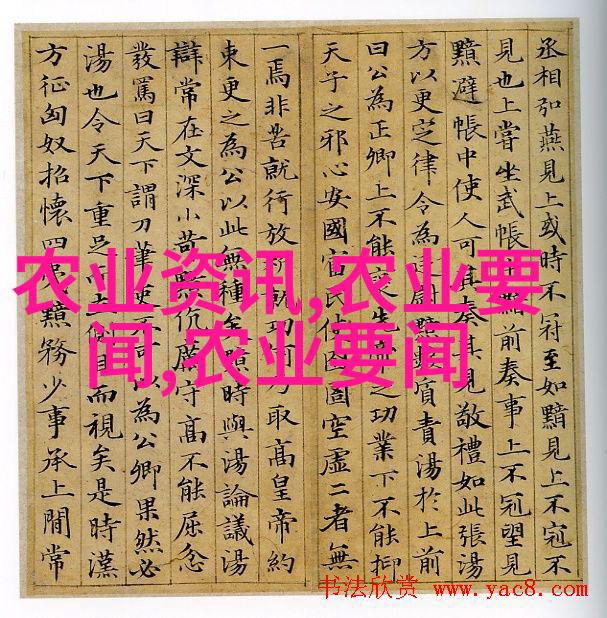 丞相弘燕見上或時不冠至如黯見上不冠不
見也上嘗坐武帳中黯前奏事上不冠望見
黯避帳中使人可其奏其見敬禮如此張湯
方以更定律令為廷尉黯數質責湯於上前
曰公為正卿上不能襃先帝之功業下不能抑
天子之邪心安國富民使囹圄空虛二者無
一焉非苦就行放就功何乃取高皇帝約
束更之為公以此無種矣黯時與湯論議湯
辯常在文深小苛黯伉厲守高不能屈忿
發罵曰天下謂刀筆吏不可以為公卿果然必
湯也令天下重足而立側目而視矣是時漢
方征匈奴招懷四夷黯務少事承上間常
农业资讯,农业要
闻,农业要闻
书法欣赏 www.yac8.com